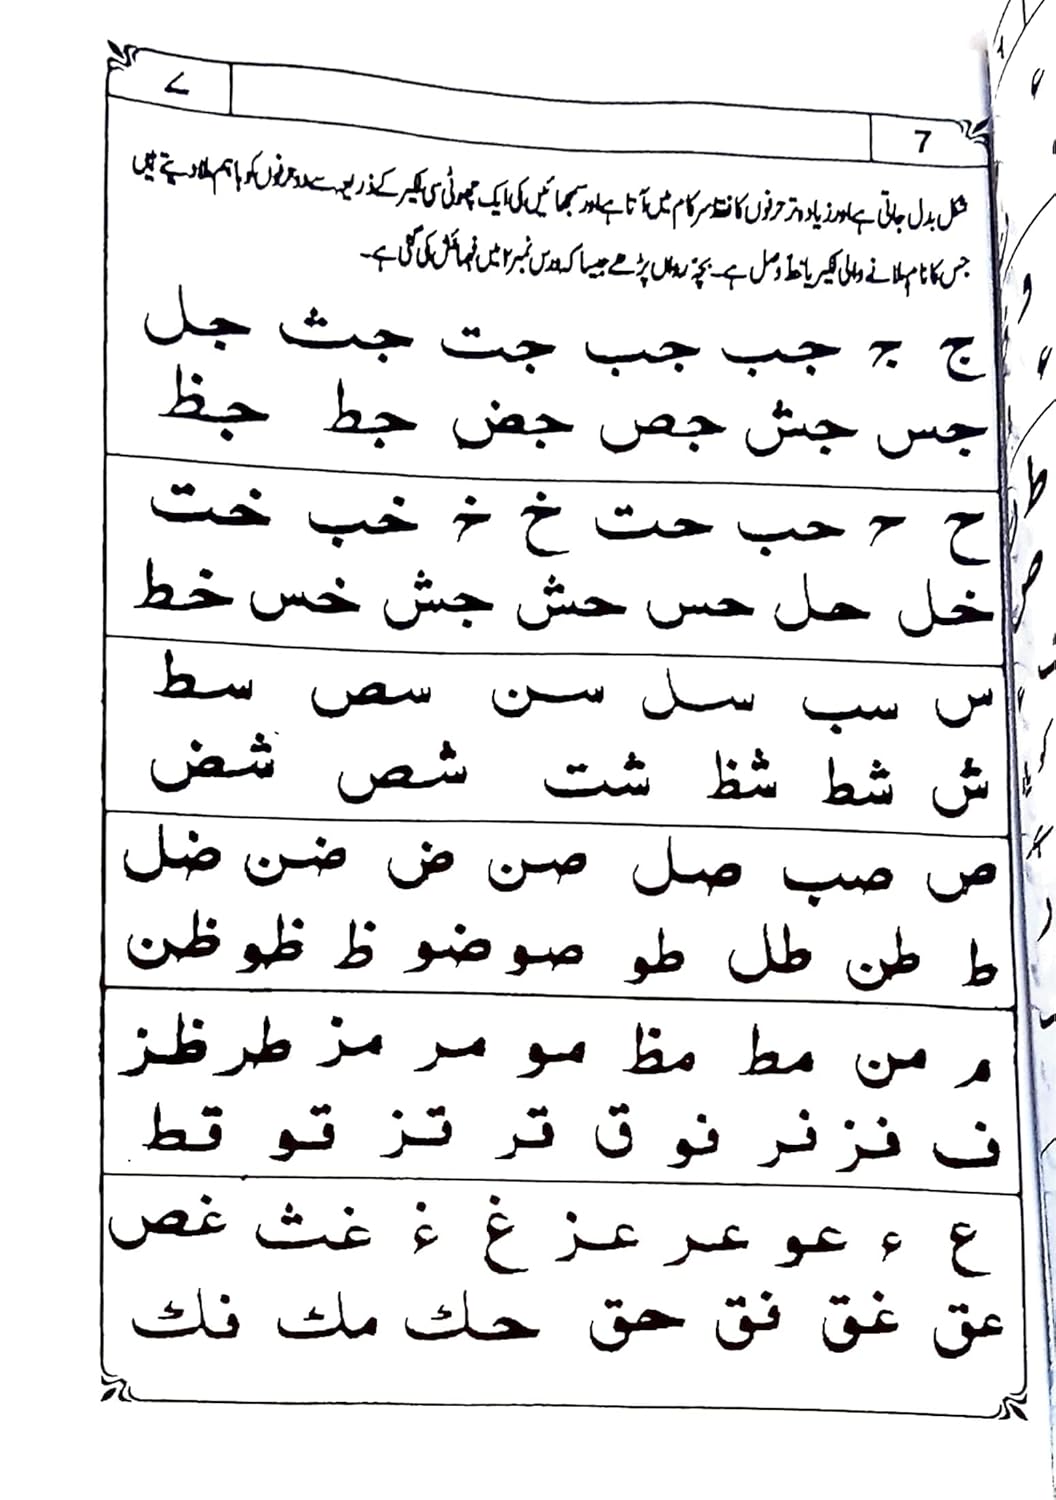 7 ۷
شکل بدل جاتی ہے اور زیادہ تر حرفوں کا فقط سر کام میں آتا ہے اور سمجھائیں کی ایک چھوٹی سی لکیر کے ذریعہ سے دو حرفوں کو باہم ملا دیتے ہیں
جس کا نام ملانے والی لکیر یا خط وصل ہے۔ بچہ رواں پڑھے جیسا کہ درس نمبر ۲ میں فہمائش کی گئی ہے۔
ج جـ جب جب جت جث جل
جس جش جص جض جط جظ
ح حـ حب حت خ خـ خب خت
خل حل حس حش جش خس خط
س سب سل سن سص سط
ش شط شظ شت شص شض
ص صب صل صن ض ضن ضل
ط طن طل طو صو ضو ظ ظو ظن
م من مط مظ مو مر مز طر ظز
ف فز فر فو ق قر قز قو قط
ع ء عو عر عز غ غـ غث غص
عق غق فق حق حك مك فك